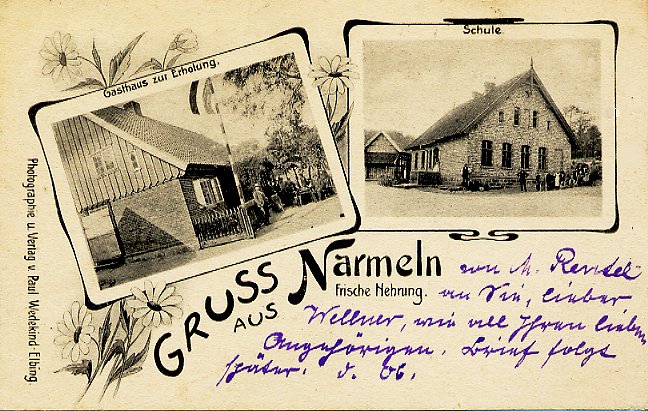 Schule.
Gasthaus zur Erholung.
GRUSS AUS Narmeln
Frische Nehrung.
von M.
an Sie, lieber
Wellner, wie all Ihren lieben
Angehörigen. Brief folgt
später. d. Ob.
Photographie u. Verlag v. Paul Wedekind-Elbing.